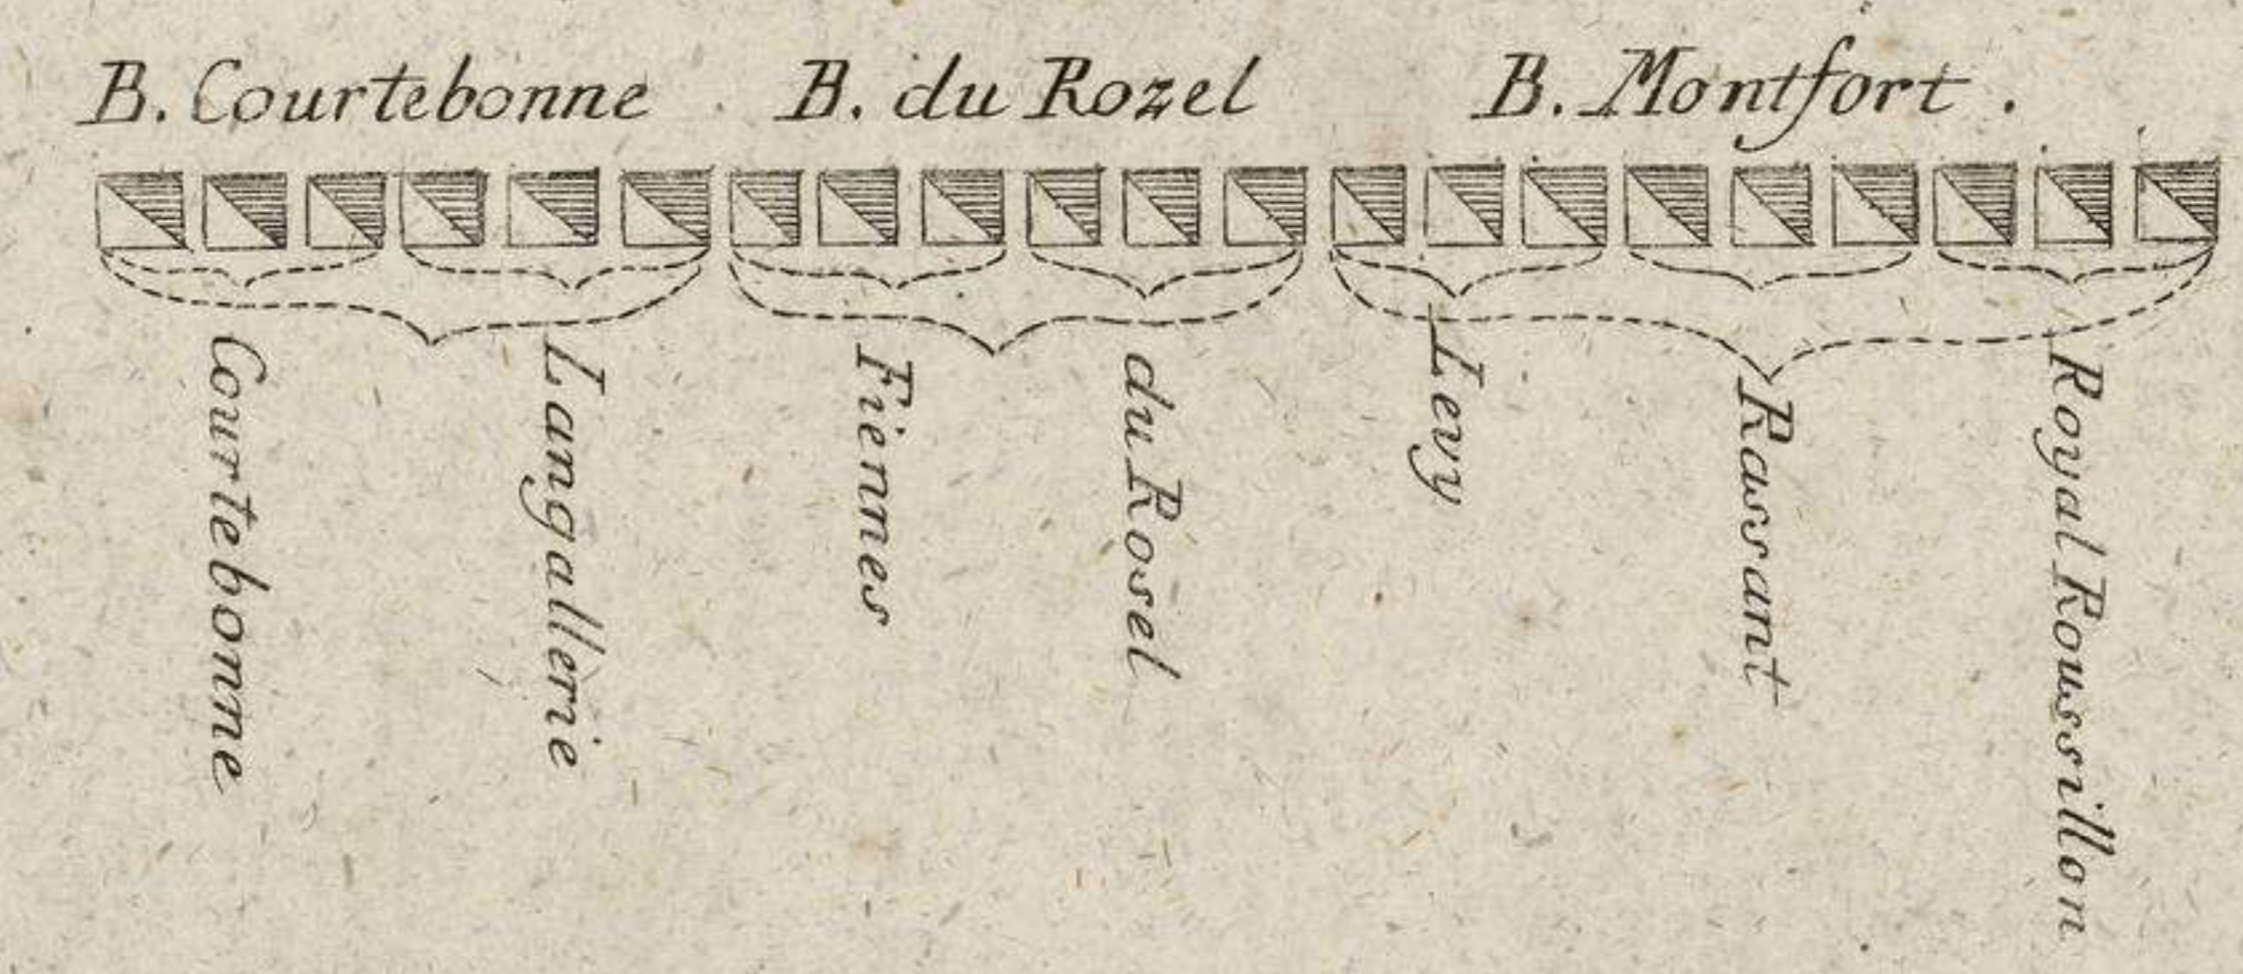 B. Courtebonne
B. du Rozel
B. Montfort.
Courtebonne
Langallerie
Fiennes
du Rosel
Levy
Rassant
Royal Roussillon